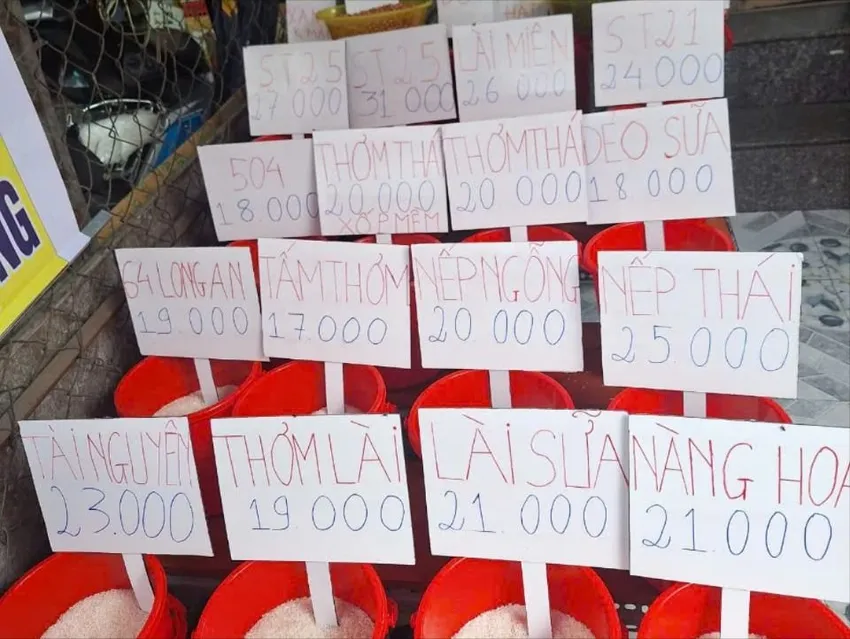 ST25
27 000
ST25
31 000
LÀI MIÊN
26 000
ST21
24 000
504
18.000
THƠM THÁI
20.000
XỐP MỀM
THƠM THÁI
20 000
DẺO SỮA
18.000
64 LONG AN
19.000
TẤM THƠM
17.000
NẾP NGỖNG
20 000
NẾP THÁI
25.000
TÀI NGUYÊN
23.000
THƠM LÀI
19 000
LÀI SỮA
21.000
NÀNG HOA
21.000